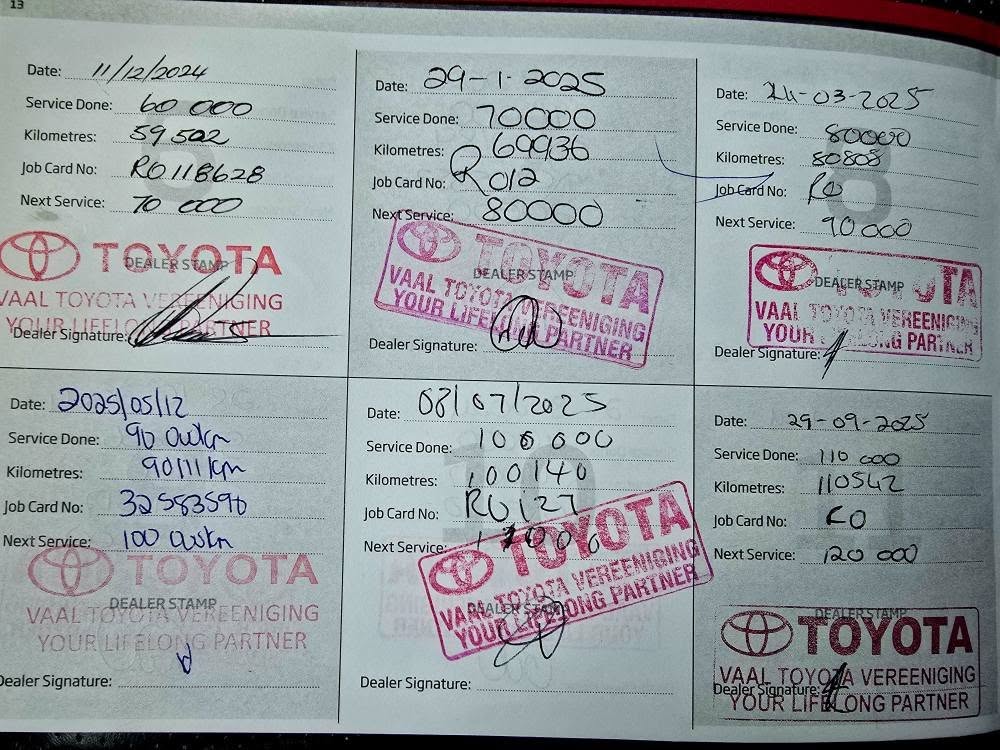 13
Date: 11/12/2024
Service Done: 60 000
Kilometres: 59 502
Job Card No: RO118628
Next Service: 70 000
TOYOTA
DEALER STAMP
VAAL TOYOTA VEREENIGING
YOUR LIFELONG PARTNER
Dealer Signature:
Date: 29-1-2025
Service Done: 70000
Kilometres: 69936
Job Card No: RO12
Next Service: 80000
TOYOTA
DEALER STAMP
VAAL TOYOTA VEREENIGING
YOUR LIFELONG PARTNER
Dealer Signature:
8
Date: 24-03-2025
Service Done: 80000
Kilometres: 80808
Job Card No: RO
Next Service: 90 000
TOYOTA
DEALER STAMP
VAAL TOYOTA VEREENIGING
YOUR LIFELONG PARTNER
Dealer Signature:
Date: 2025/05/12
Service Done: 90 000km
Kilometres: 90111km
Job Card No: 32583590
Next Service: 100 000km
TOYOTA
DEALER STAMP
VAAL TOYOTA VEREENIGING
YOUR LIFELONG PARTNER
Dealer Signature:
10
Date: 08/07/2025
Service Done: 100 000
Kilometres: 100140
Job Card No: RO127
Next Service: 110000
TOYOTA
VAAL TOYOTA VEREENIGING
DEALER STAMP
YOUR LIFELONG PARTNER
Dealer Signature:
Date: 29-09-2025
Service Done: 110 000
Kilometres: 110542
Job Card No: RO
Next Service: 120 000
DEALER STAMP
TOYOTA
VAAL TOYOTA VEREENIGING
Dealer Signature:
YOUR LIFELONG PARTNER